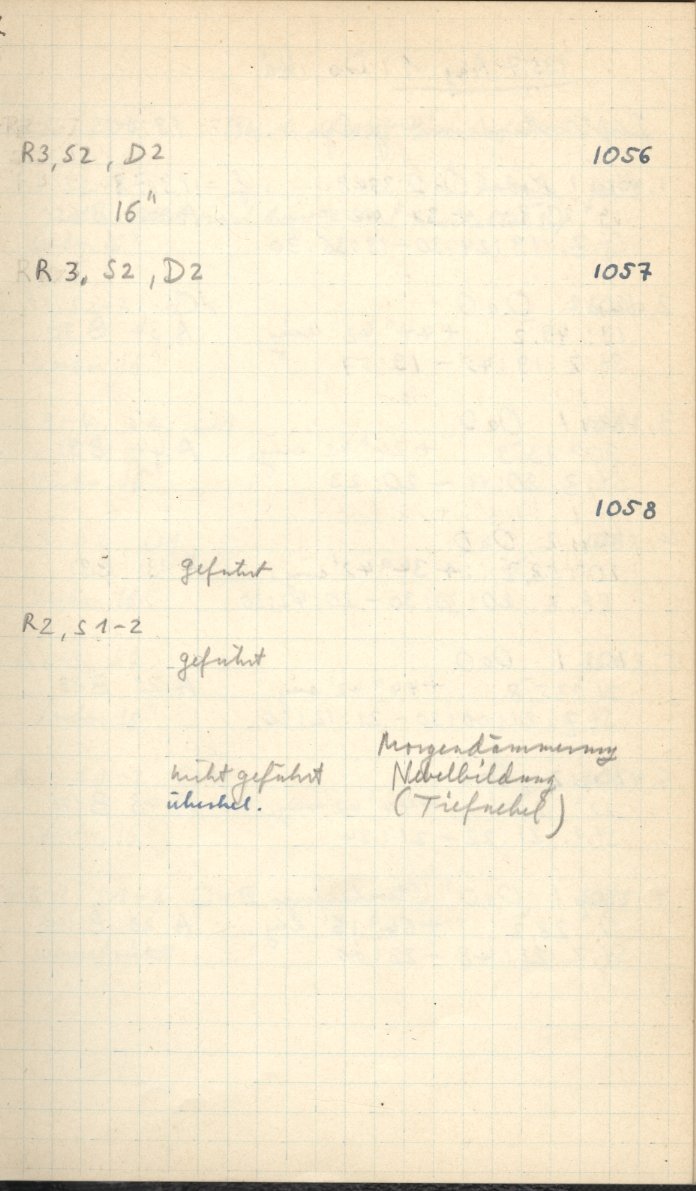 R3, S2, D2 1056
16"
R 3, S2, D2 1057
1058
geführt
R2, S 1-2
geführt
Morgendämmerung
nicht geführt Nebelbildung
(Tiefnebel)